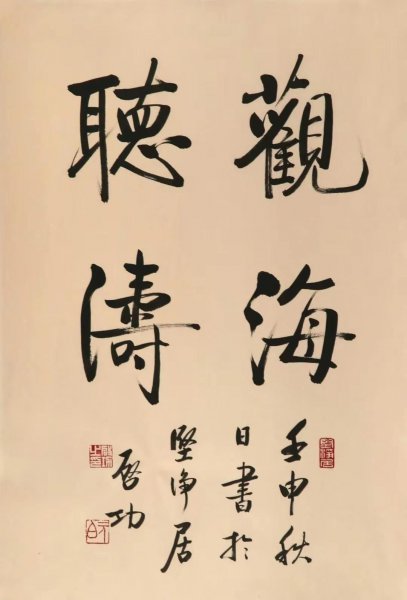 觀海
聽濤
壬申秋
日書於
堅净居
啓功